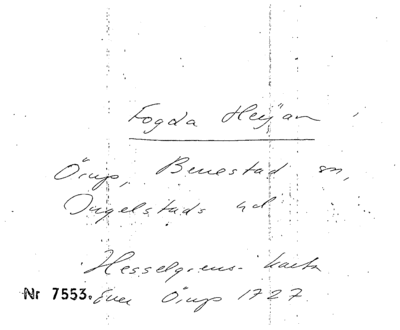 Fogda Heijan
Örup, Benestad sn,
Ingelstads hd
Hesselgrens karta
Nr 7553. över Örup 1727.